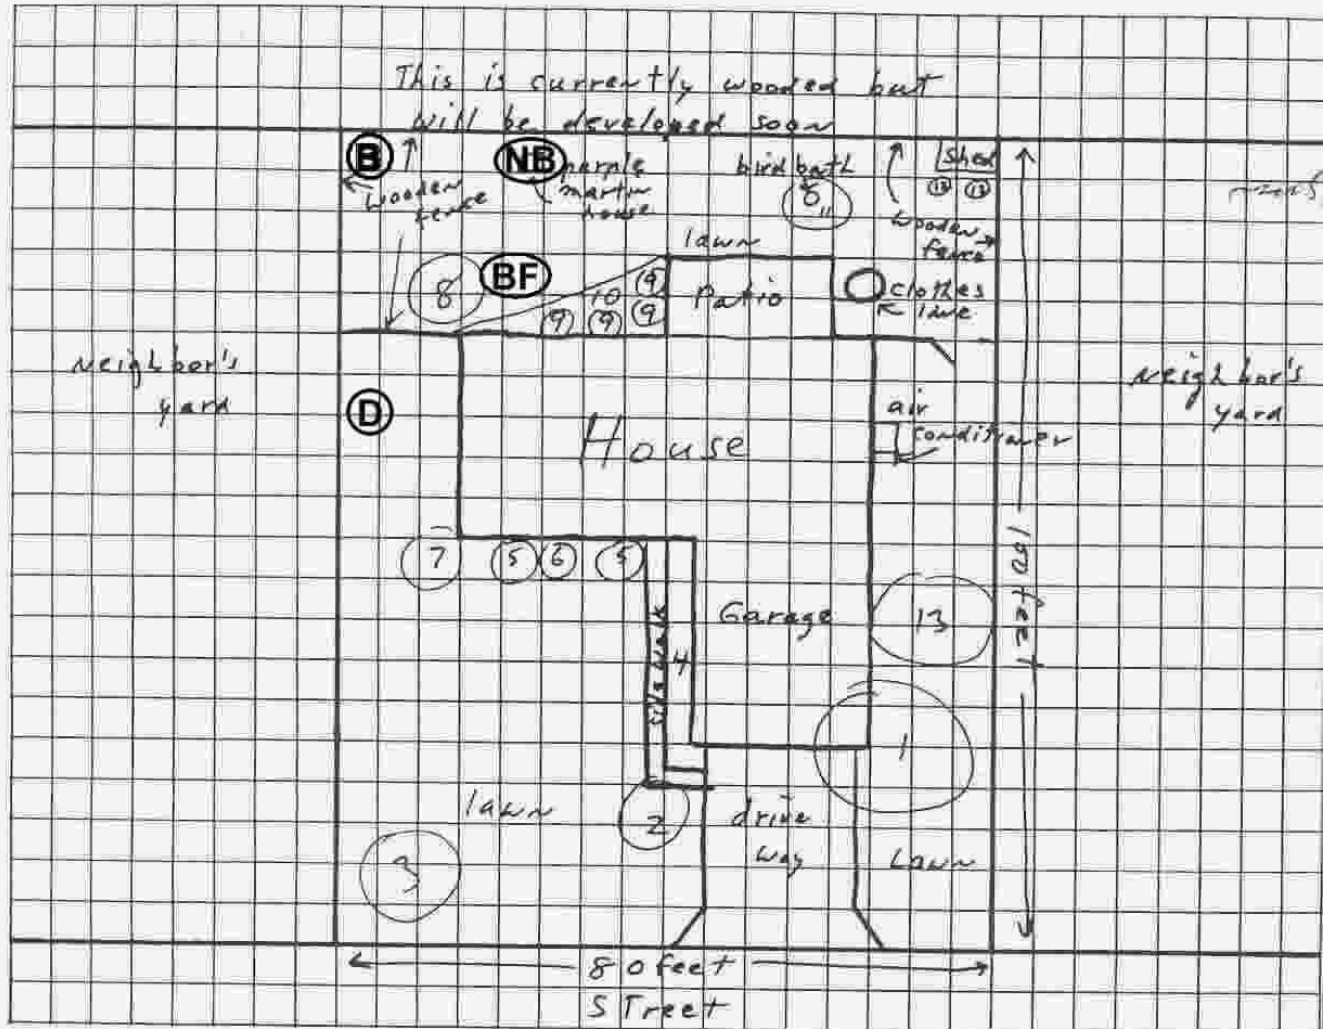 This is currently wooded but
will be developed soon
B
NB
purple
martin
house
wooden
fence
bird bath
8
11
Shed
wooden
fence
lawn
8
BF
10
9
9
9
9
Patio
clothes
line
Neighbor's
yard
Neighbor's
yard
D
House
air
conditioner
7
5
6
5
sidewalk
4
Garage
13
150 feet
1
lawn
2
drive
way
Lawn
3
80 feet
STreet